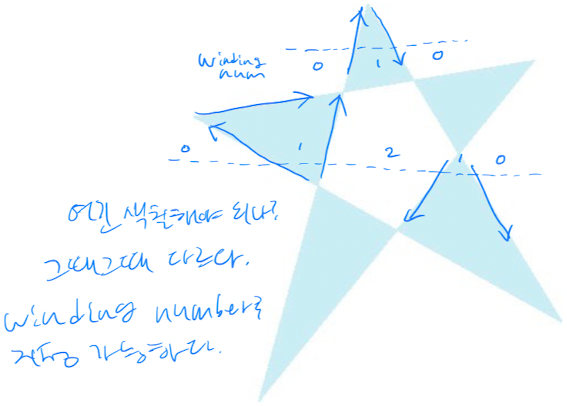 winding
num
0 1 0
0 1 2 1 0
여긴 색칠해야 되나?
그때그때 다르다.
winding number로
지정 가능하다.